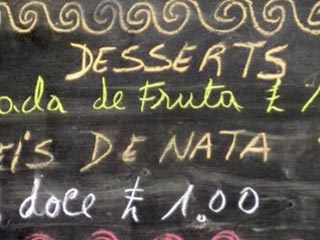 DESSERTS
ada de Fruta £
EÍS DE NATA
doce £ 1.00